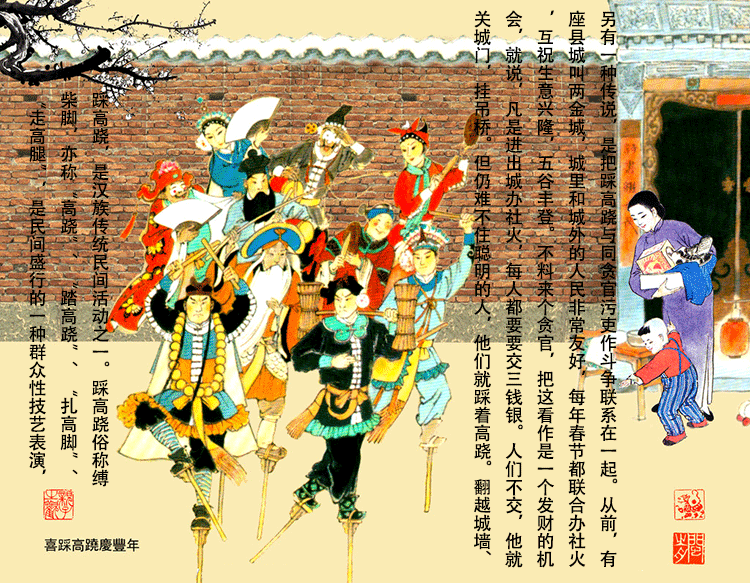 另有一种传说，是把踩高跷与同贪官污吏作斗争联系在一起。从前，有
座县城叫两金城，城里和城外的人民非常友好，每年春节都联合办社火
，互祝生意兴隆，五谷丰登。不料来个贪官，把这看作是一个发财的机
会，就说，凡是进出城办社火，每人都要要交三钱银。人们不交，他就
关城门，挂吊桥。但仍难不住聪明的人，他们就踩着高跷。翻越城墙、
踩高跷，是汉族传统民间活动之一。踩高跷俗称缚
柴脚，亦称“高跷”、“踏高跷”、“扎高脚”、
“走高腿”，是民间盛行的一种群众性技艺表演，
喜踩高蹺慶豐年